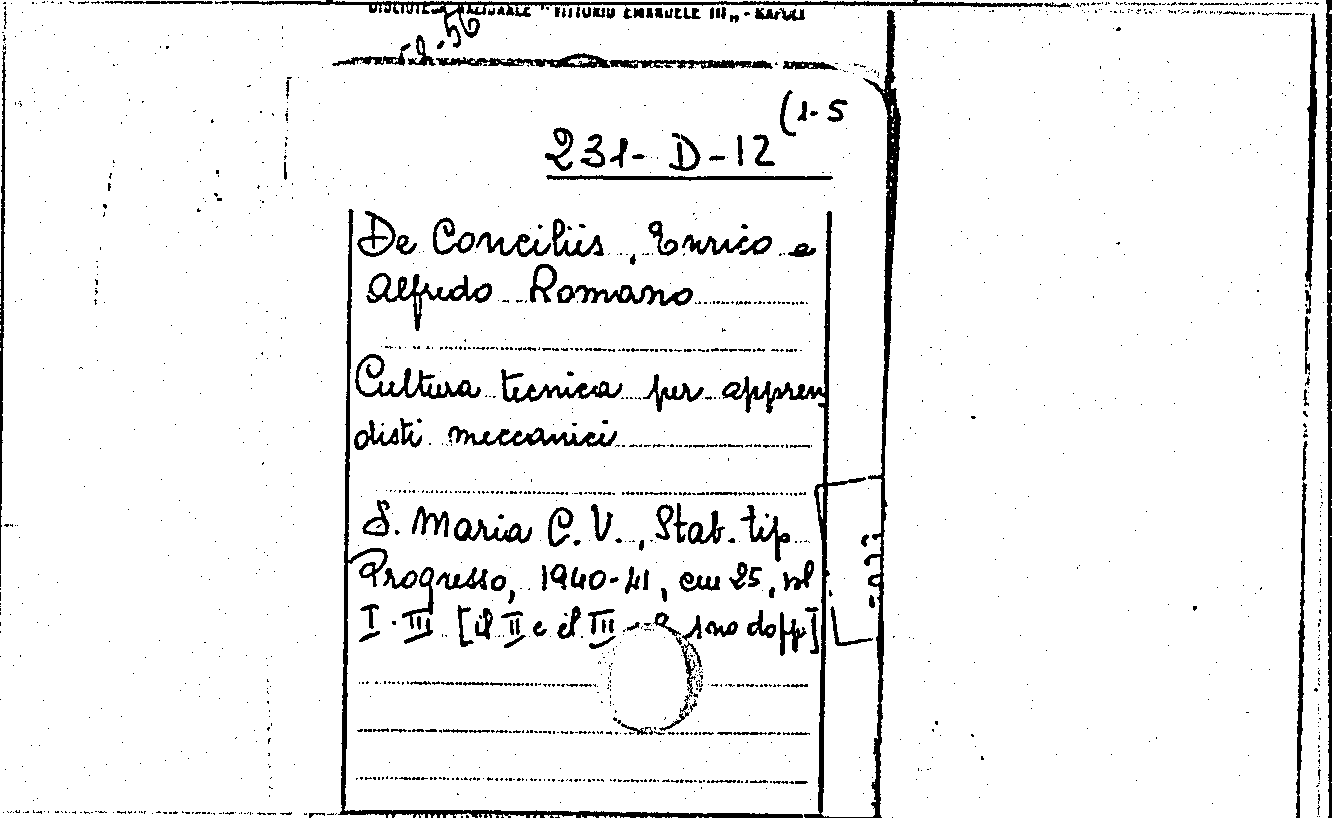 "VITTORIO EMANUELE III„ - NAPOLI
-9-56
(1-5
231-D-12
De Conciliis, Enrico e
Alfredo Romano
Cultura tecnica per appren
disti meccanici
S. Maria C. V., Stab. tip.
Progresso, 1940-41, cm 25, vol
I-III [il II e il III sno dopp]